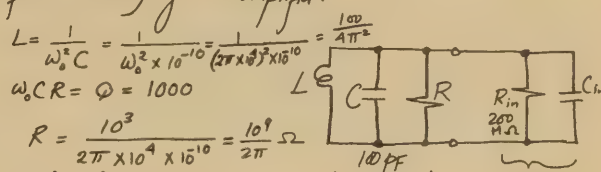 L = 1/(ω₀² C) = 1/(ω₀² × 10⁻¹⁰) = 1/((2π × 10⁴)² × 10⁻¹⁰) = 100/(4π²)
ω₀CR = Q = 1000
R = 10³/(2π × 10⁴ × 10⁻¹⁰) = 10⁹/(2π) Ω
L C R Rin Cin
200 MΩ
100 pF